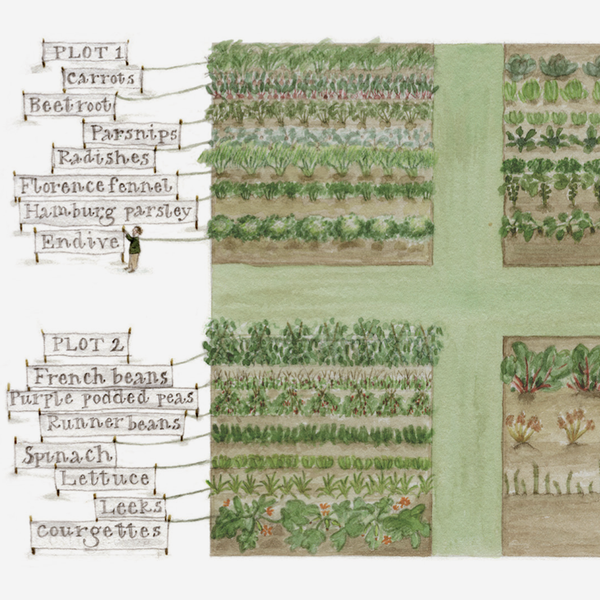 PLOT 1
Carrots
Beetroot
Parsnips
Radishes
Florence fennel
Hamburg parsley
Endive
PLOT 2
French beans
Purple podded peas
Runner beans
Spinach
Lettuce
Leeks
Courgettes